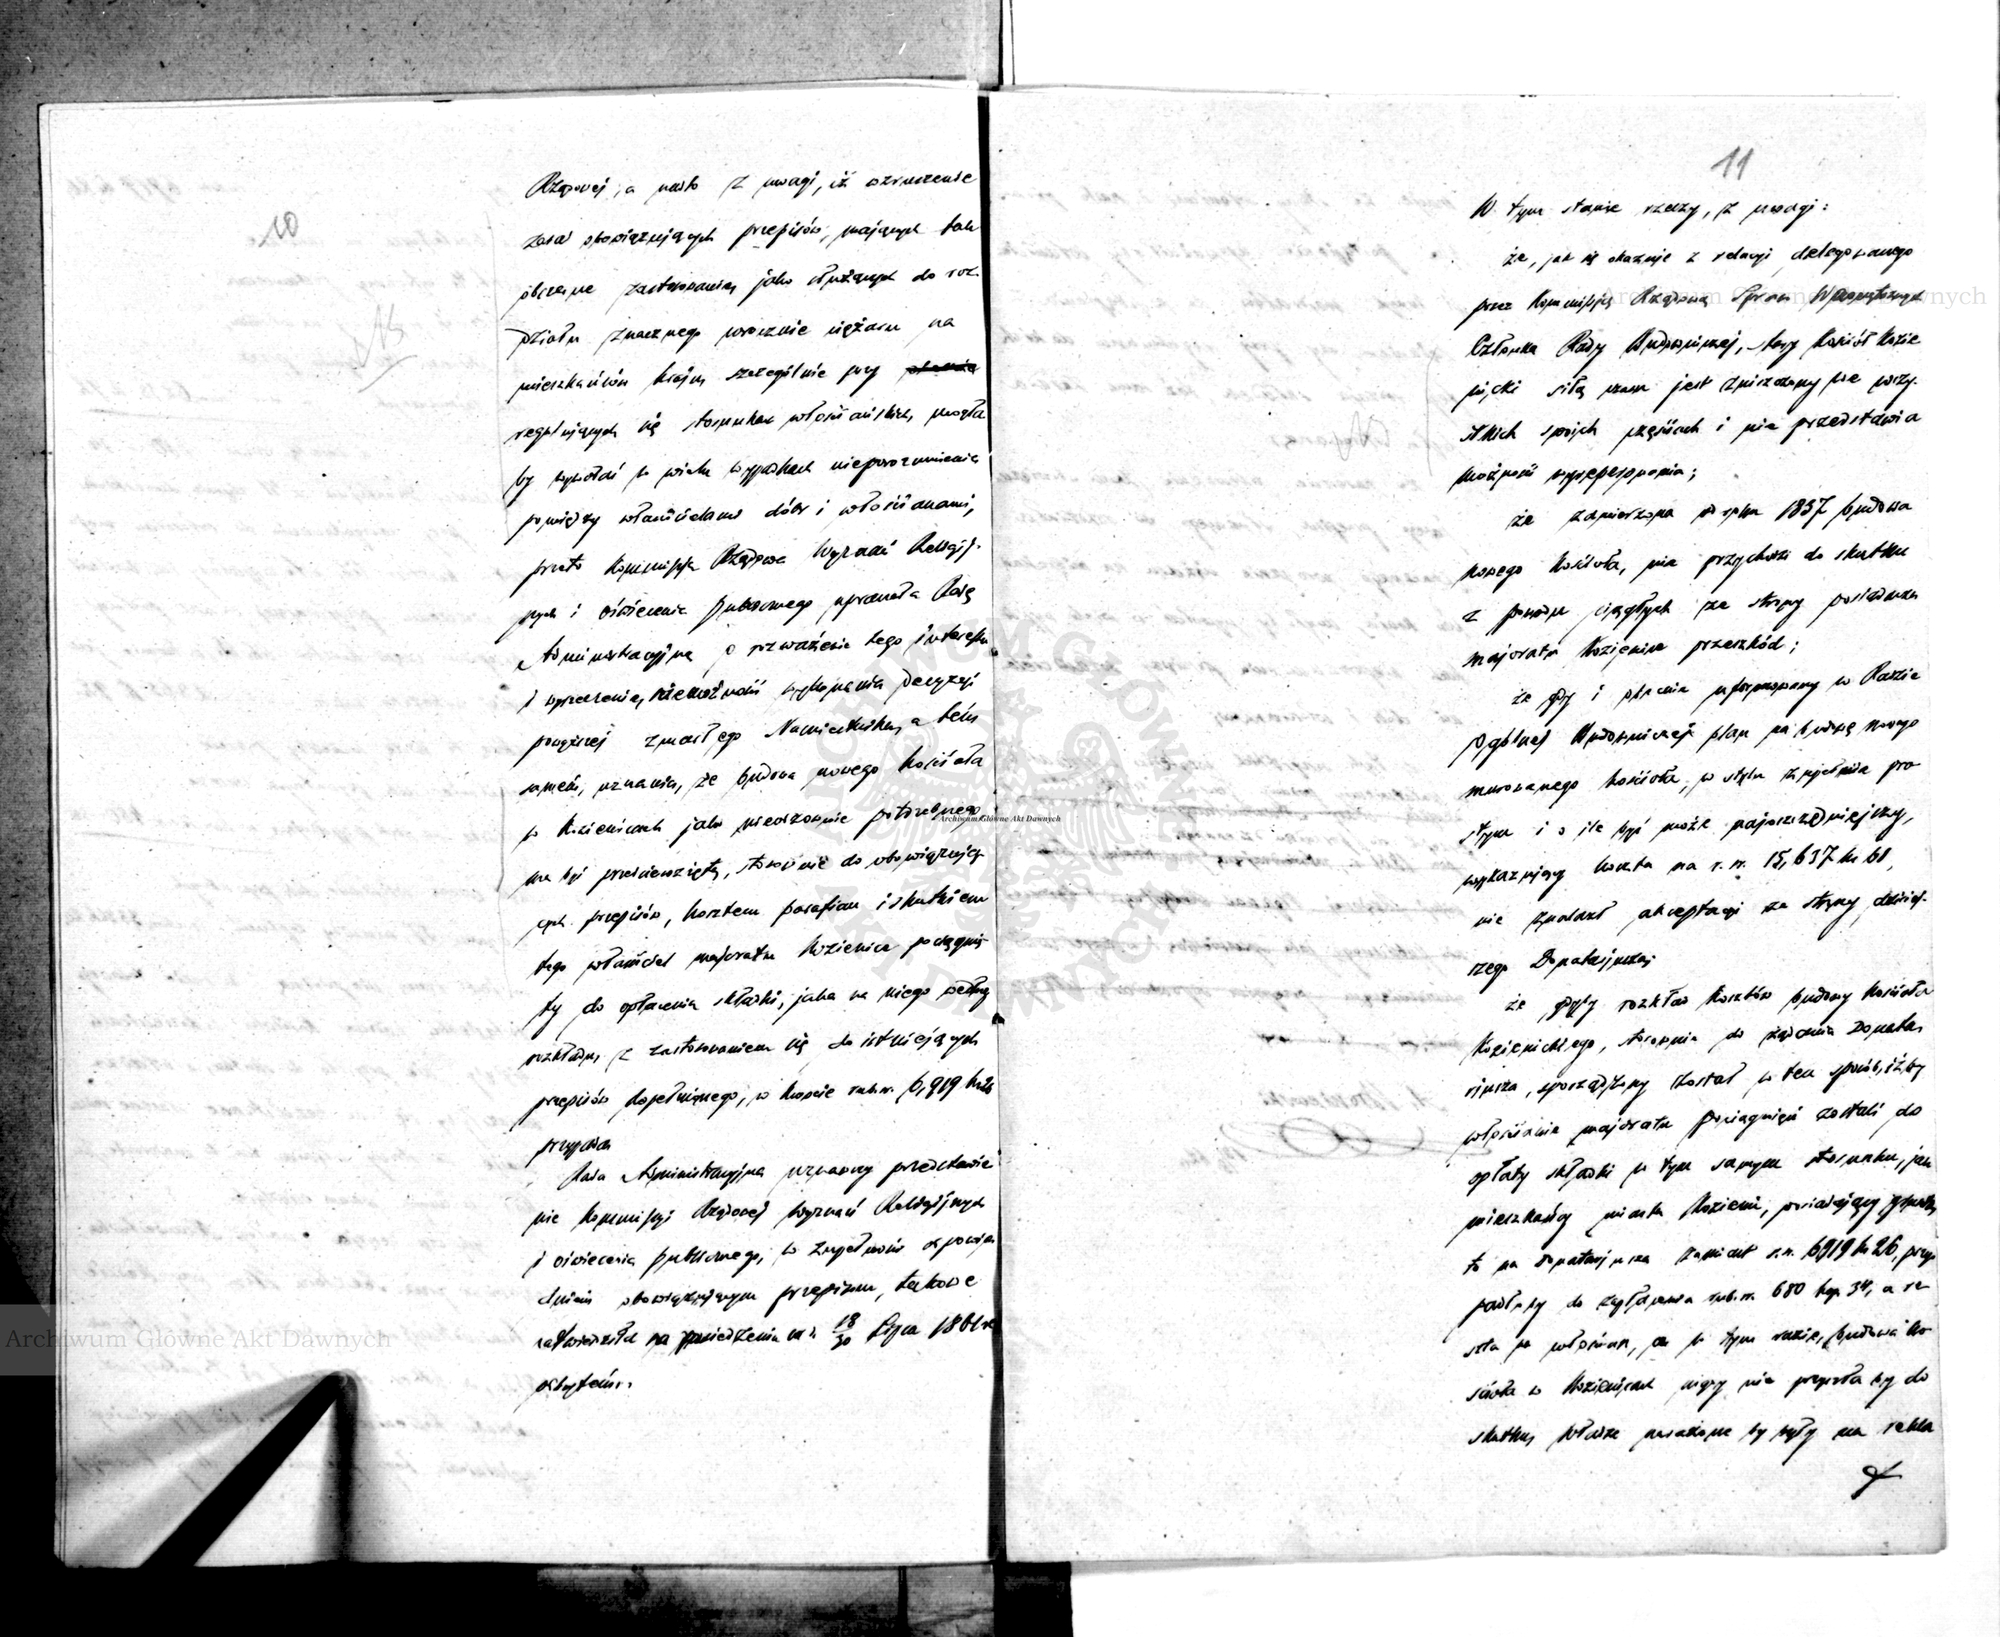 10
Rządowej, a nadto z uwagi, iż wzruszenie
zasad obowiązujących przepisów, mających tak
obszerne zastosowanie, jako służących do roz-
działu znacznego corocznie ciężaru na
mieszkańców kraju, szczególnie przy
regulujących się stosunkach włościańskich, mogła
by wywołać w wielu wypadkach nieporozumienia
pomiędzy właścicielami dóbr i włościanami,
przeto Kommissja Rządowa Wyznań Religij-
nych i Oświecenia Publicznego upraszała Radę
Administracyjną o rozważenie tego interesu
i wyrzeczenie, niemożność wykonania decyzji
powyższej zmarłego Namiestnika, a tém
samém, uznania, że budowa nowego Kościoła
w Kozienicach jako niedozownie potrzebnego
ma być przedsięwzięta, stosownie do obowiązują-
cych przepisów, kosztem parafian i skutkiem
tego właściciel majoratu Kozienice pociągnię-
ty do opłacenia składki, jaka na niego według
rozkładu, z zastosowaniem się do istniejących
przepisów dopełnionego, w kwocie rub. sr. 6,919 k. 26
przypada
Rada Administracyjna uznawszy przedstawie-
nie Kommissyi Rządowej Wyznań Religijnych
i Oświecenia Publicznego, w zupełności odpowia-
dniém obowiązującym przepisom, takowe
zatwierdziła na posiedzeniu w d. 18/30 Lipca 1861 r.
odbytém.
11
W tym stanie rzeczy, z uwagi:
że, jak się okazuje z relacyi delegowanego
przez Kommissją Rządową Spraw Wewnętrznych
Członka Rady Budowniczej, stary Kościół Kozie-
nicki siłą czasu jest zniszczony we wszy-
stkich swoich częściach i nie przedstawia
możności wyreperowania;
że zamierzona od roku 1837 budowa
nowego Kościoła, nie przychodzi do skutku
z powodu ciągłych ze strony posiadacza
majoratu Kozienice przeszkód;
że gdy i obecnie uformowany w Radzie
Ogólnej Budowniczej plan na budowę nowego
murowanego kościoła, w stylu zupełnie pro-
stym i o ile być może najoszczędniejszy,
wykazujący koszta na r. sr. 15,637 k. 61,
nie znalazł akceptacyi ze strony dzisiej-
szego Donatarjusza;
że gdyby rozkład kosztów budowy Kościoła
Kozienickiego, stosownie do żądania Donata-
rjusza, sporządzony został w ten sposób, iżby
włościanie majoratu pociągnięci zostali do
opłaty składki w tym samym stosunku, jak
mieszkańcy miasta Kozienic, posiadający grunta,
to na Donatarjusza zamiast r. sr. 6919 k. 26, przy-
padłoby do zapłacenia rub. sr. 680 kop. 34, a re-
szta na włościan, że w tym razie, budowa ko-
ścioła w Kozienicach nigdy nie przyszła by do
skutku, Władze narażone by były na rekla
Archiwum Główne Akt Dawnych
Archiwum Główne Akt Dawnych
Archiwum Główne Akt Dawnych
ARCHIWUM GŁÓWNE AKT DAWNYCH